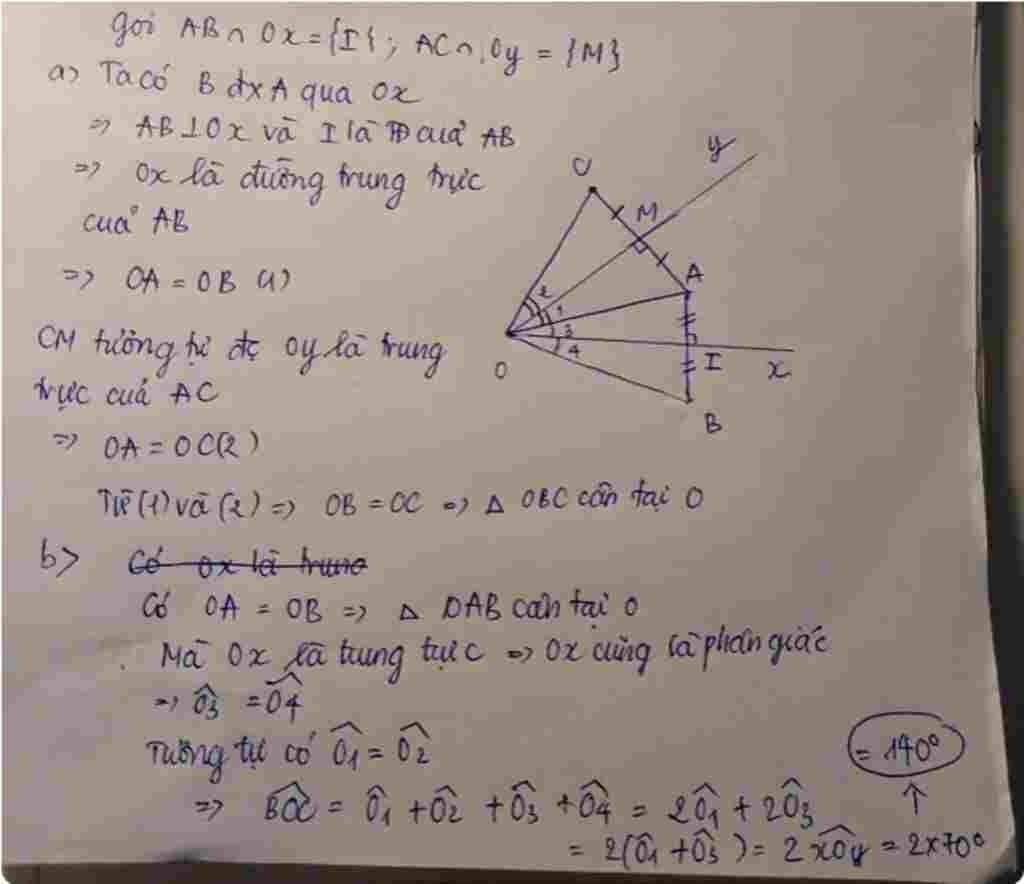 Gọi AB ∩ Ox = {I}; AC ∩ Oy = {M}
a) Ta có B đx A qua Ox
=> AB ⊥ Ox và I là TĐ của AB
=> Ox là đường trung trực
của AB
=> OA = OB (1)
CM tương tự đc Oy là trung
trực của AC
=> OA = OC (2)
Từ (1) và (2) => OB = OC => Δ OBC cân tại O
b> Có Ox là trung
Có OA = OB => Δ OAB cân tại O
Mà Ox là trung trực => Ox cũng là phân giác
=> Ô3 = Ô4
Tương tự có Ô1 = Ô2
=> BÔC = Ô1 + Ô2 + Ô3 + Ô4 = 2Ô1 + 2Ô3
= 2(Ô1 + Ô3) = 2 xÔy = 2x70°
= 140°
C
M
y
A
2
1
3
4
O
I
x
B